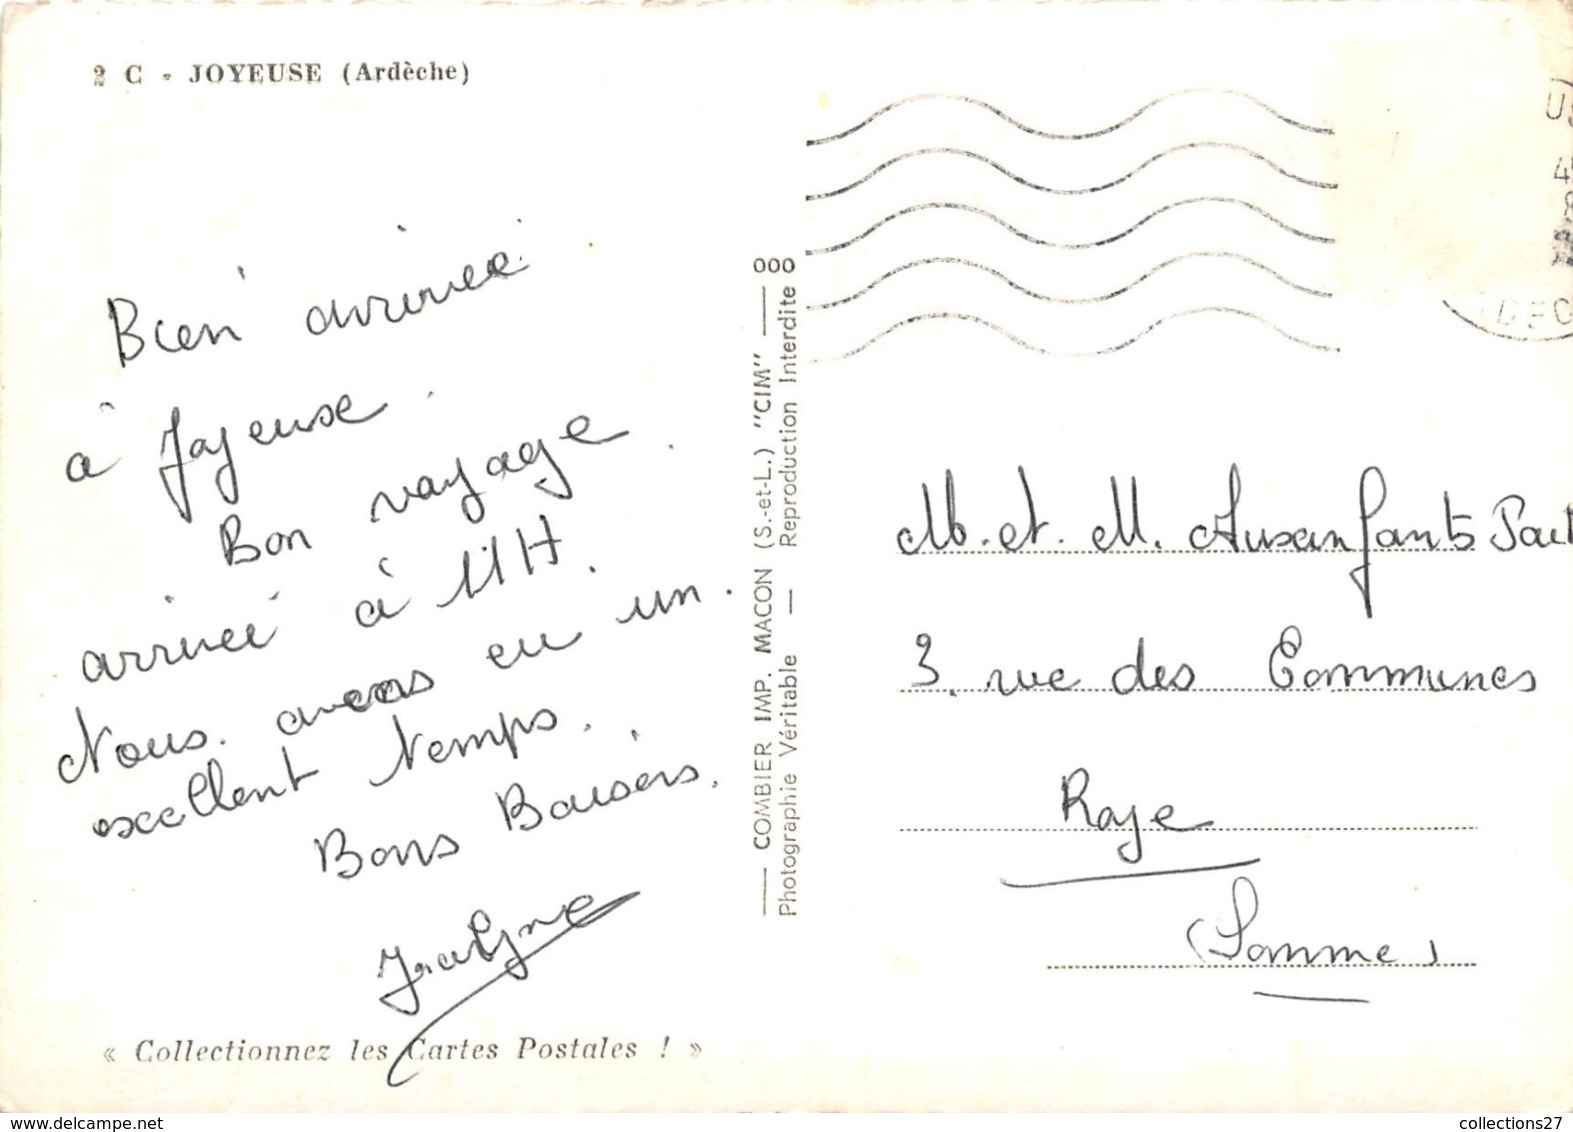 2 C - JOYEUSE (Ardèche)
Bien arrivée
à Joyeuse.
Bon voyage.
arrivée à 11H.
Nous avons eu un
excellent temps.
Bons Baisers.
Jocelyne
« Collectionnez les Cartes Postales ! »
COMBIER IMP. MACON (S.-et-L.) "CIM" 000
Photographie Véritable — Reproduction Interdite
M. et M. Ausenfants
3. rue des Communes
Raye
(Somme)
collections27